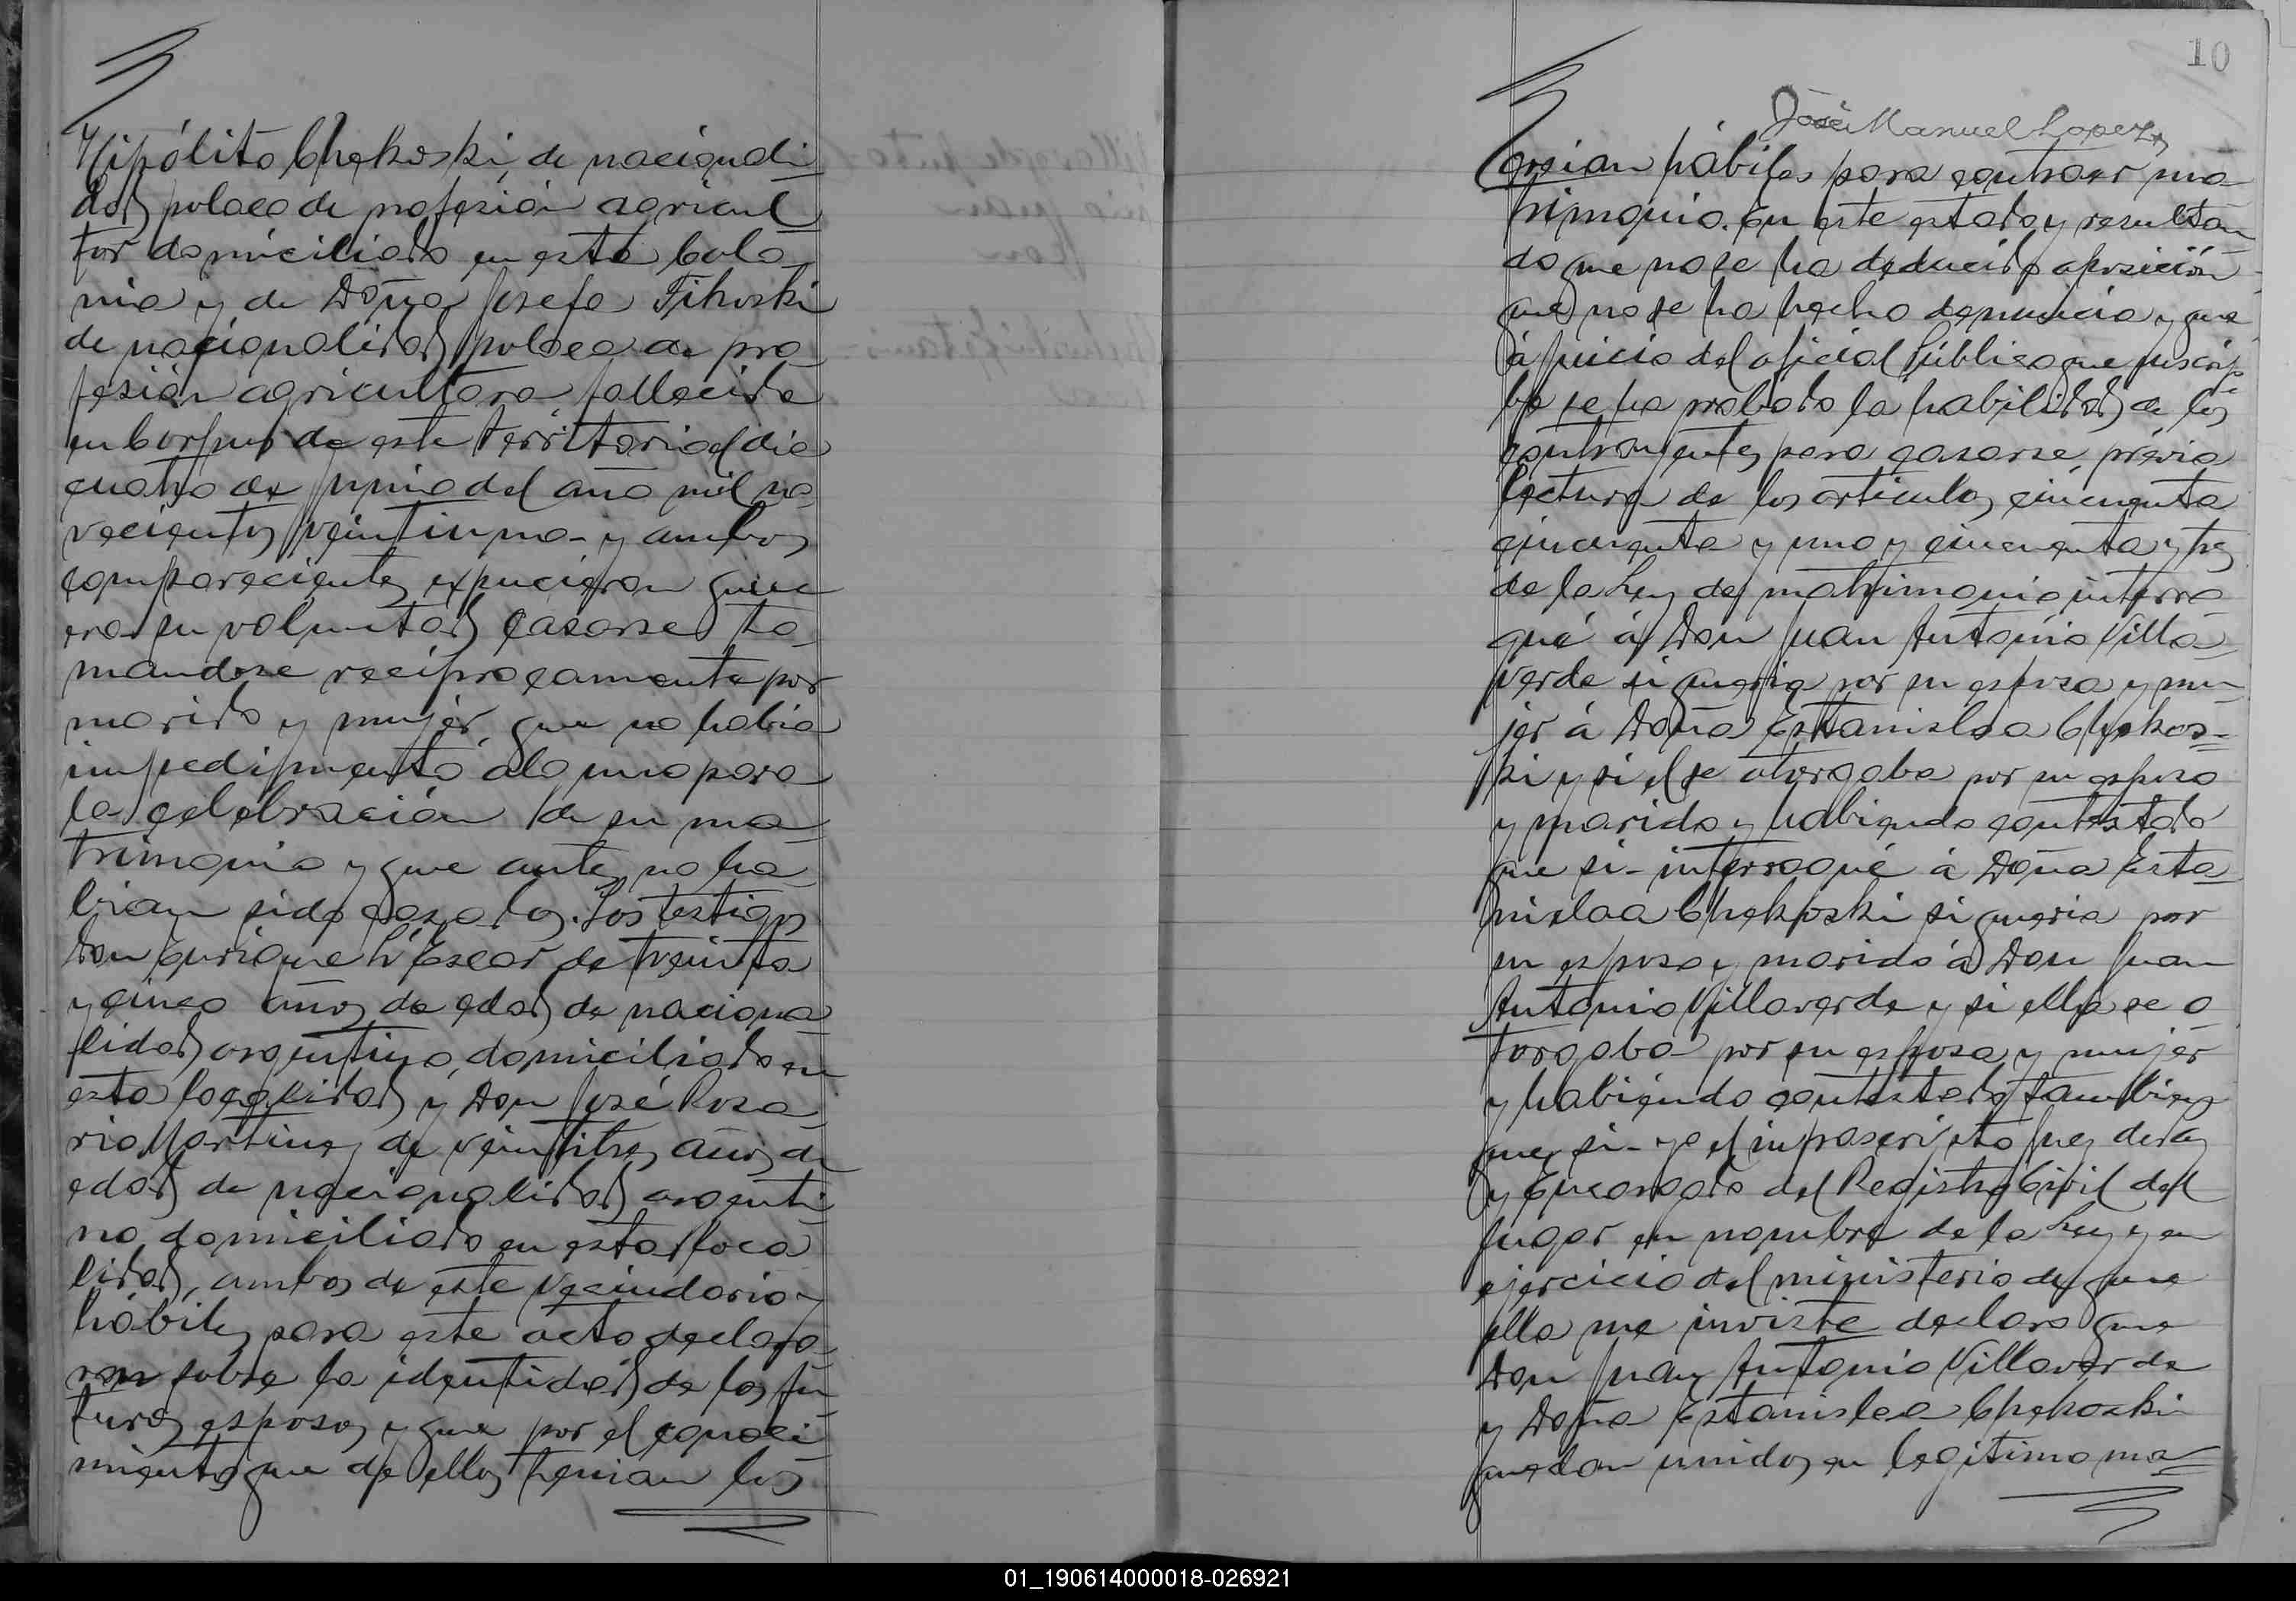 Hipólito Chekoski, de nacionali
dad polaca de profesión agricul
tor domiciliado en esta Colo
nia y de Doña Josefa Tikoski
de nacionalidad polaca de pro
fesión agricultora, fallecida
en Corpus de este territorio el dia
cuatro de Junio del año mil no
vecientos veintiuno - y ambos
comparecientes expucieron que
era su voluntad casarse to
mandose reciprocamente por
marido y mujer, que no habia
impedimento alguno para
la celebración de su ma
trimonio y que antes no ha
bian sido casados. Los testigos
Don Enrique L'Escar de treinta
y cinco años de edad de naciona
lidad argentino, domiciliado en
esta localidad y Don José Rosa
rio Martinez de veintitres años de
edad de nacionalidad argenti
no domiciliado en esta loca
lidad, ambos de este vecindario y
hábiles para este acto declara
ron sobre la identidad de los fu
turos esposos y que por el conoci
miento que de ellos tenian los
10
José Manuel Lopez
creian hábiles para contraer ma
trimonio. En este estado y resultan
do que no se ha deducido oposición
que no se ha hecho denuncia y que
á juicio del oficial Público que suscri
be se ha probado la habilidad de los
contrayentes para casarse, prévia
lectura de los articulos cincuenta
cincuenta y uno y cincuenta y tres
de la Ley de matrimonio interro
gué á Don Juan Antonio Villa
verde si queria por su esposa y mu
jer á Doña Estanislaa Chekos-
ki y si el se otorgaba por su esposo
y marido y habiendo contestado
que si - interrogué á Doña Esta
nislaa Chekoski si queria por
su esposo y marido á Don Juan
Antonio Villaverde y si ella se o
torgaba por su esposa y mujer
y habiendo contestado tambien
que si - yo el infrascripto Juez de Paz
y Encargado del Registro Civil del
lugar en nombre de la Ley y en
ejercicio del ministerio de que
ella me inviste declaro que
Don Juan Antonio Villaverde
y Doña Estanislaa Chekoski
quedan unidos en legitimo ma
01_190614000018-026921